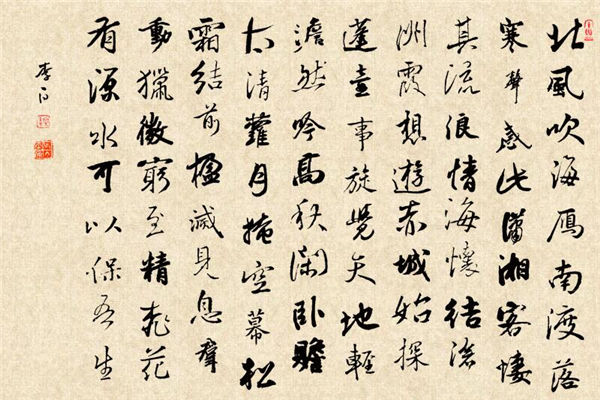 北風吹海雁南渡落
寒聲感此瀟湘客悽
其流浪情海懷結滄
洲霞想遊赤城始探
蓬壺事旋覺天地輕
澹然吟高秋閑臥瞻
太清蘿月掩空幕松
霜結前楹滅見息羣
動獵微窮至精桃花
有源水可以保吾生
李白